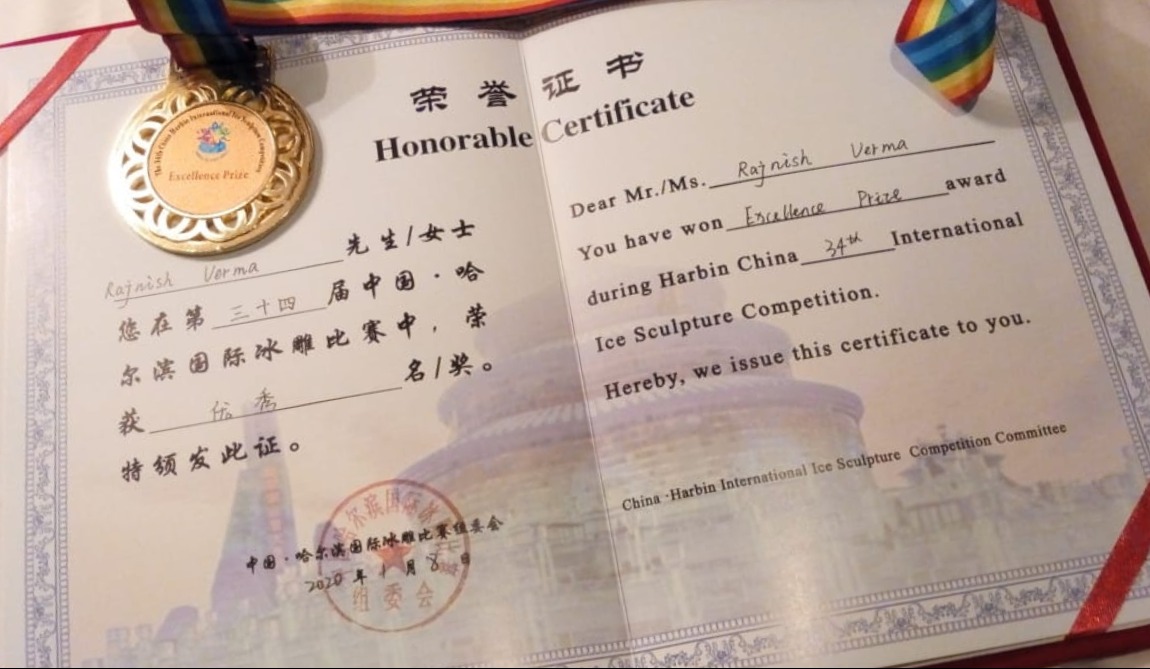 The 34th China Harbin International Ice Sculpture Competition
Excellence Prize
荣誉证书
Honorable Certificate
Rajnish Verma 先生/女士
您在第 三十四 届中国·哈
尔滨国际冰雕比赛中，荣
获 优秀 名/奖。
特颁发此证。
中国·哈尔滨国际冰雕比赛组委会
2020年1月8日
哈尔滨国际冰
组委会
Dear Mr./Ms. Rajnish Verma
You have won Excellence Prize award
during Harbin China 34th International
Ice Sculpture Competition.
Hereby, we issue this certificate to you.
China·Harbin International Ice Sculpture Competition Committee